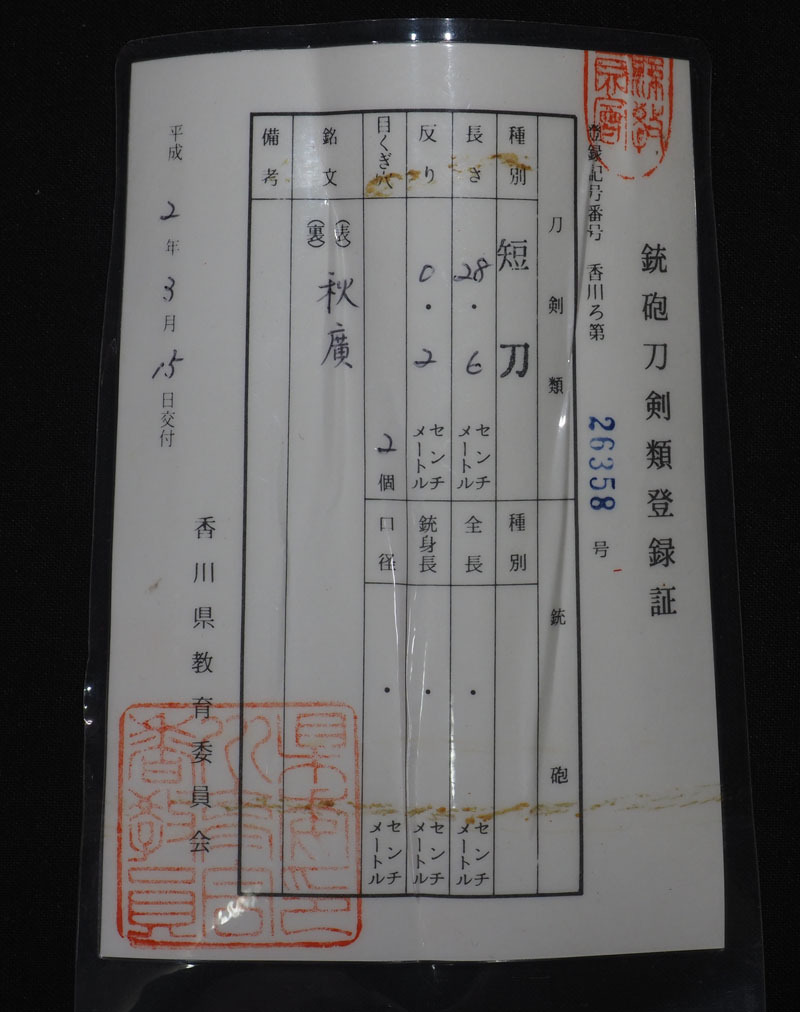 銃砲刀剣類登録証
登録記号番号 香川ろ第 26358 号
刀剣類
銃砲
種別 短刀
種別
長さ 28.6 センチメートル
全長 . センチメートル
反り 0.2 センチメートル
銃身長 . センチメートル
目くぎ穴 2個
口径 . センチメートル
銘文 (表) 秋廣
(裏)
備考
平成2年3月15日交付
香川県教育委員会